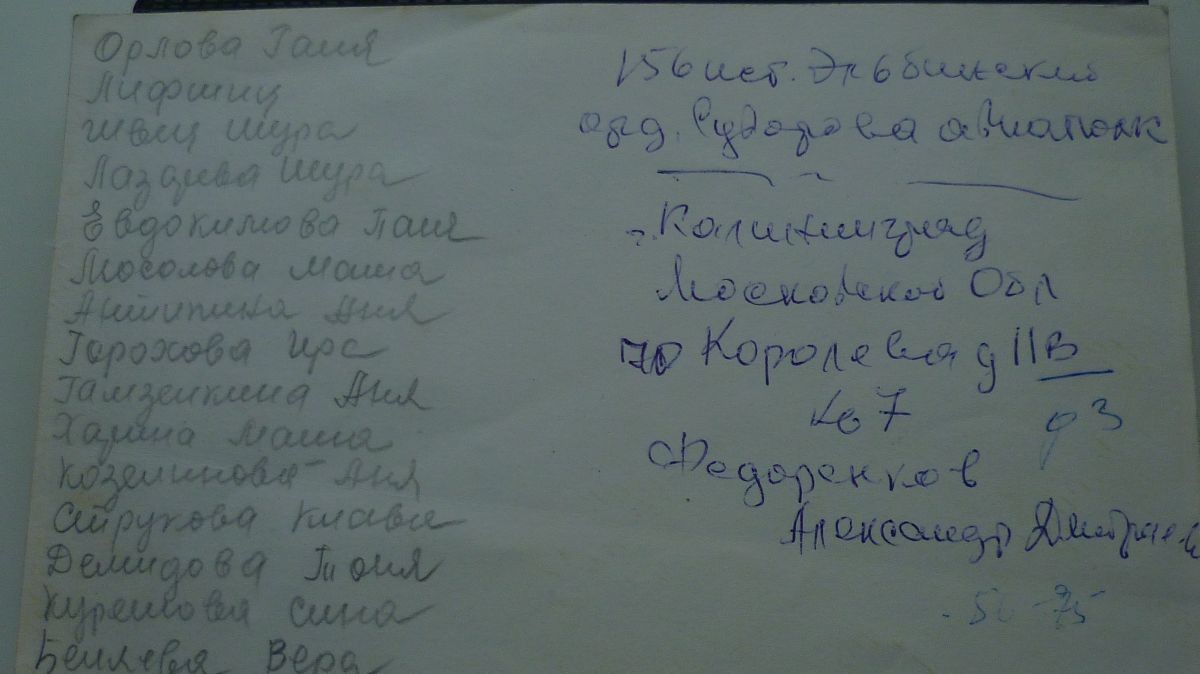 Орлова Галя
Лифшиц
Швец Шура
Лаздива Шура
Евдокимова Галя
Мосолова Маша
Антипина Аня
Горохова Ира
Гамзенкина Аня
Харина Маша
Аня
Струкова Клава
Демидова Тоня
Сина
Беляева Вера
156 ист. Эльбинский
орд. Суворова авиаполк
Калининград
Московской Обл
Королева д 11В
кв 7
д 3
Федоренков
Александр